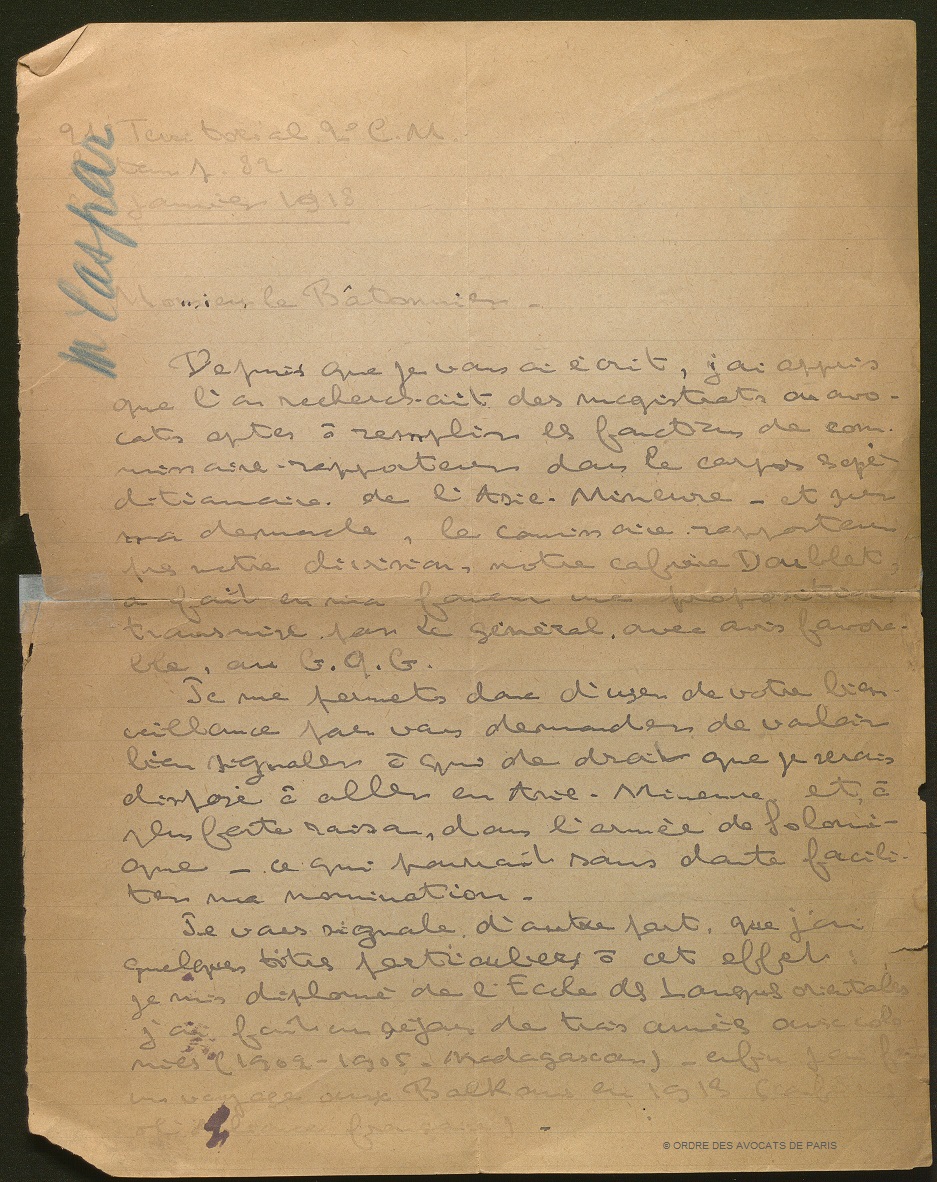 Territorial 2e C.M.
p. 82
janvier 1918
M Caspar
Monsieur le Bâtonnier -
Depuis que je vous ai écrit, j'ai appris
que l'on recherchait des magistrats ou avo-
cats aptes à remplir les fonctions de com-
missaire-rapporteur dans le corps expé-
ditionnaire de l'Asie-Mineure - et sur
ma demande, le commissaire rapporteur
près notre division, notre confrère Doublet,
a fait en ma faveur une proposition
transmise par le général, avec avis favora-
ble, au G.Q.G.
Je me permets donc d'user de votre bien-
veillance pour vous demander de vouloir
bien signaler à qui de droit que je serais
disposé à aller en Asie-Mineure, et, à
plus forte raison, dans l'armée de Saloni-
que - ce qui pourrait sans doute facili-
ter ma nomination -
Je vous signale, d'autre part, que j'ai
quelques titres particuliers à cet effet :
je suis diplomé de l'Ecole des Langues orientales
j'ai fait un séjour de trois années aux colo-
nies (1902-1905 - Madagascar) - enfin j'ai fait
un voyage aux Balkans en 1913
© ORDRE DES AVOCATS DE PARIS